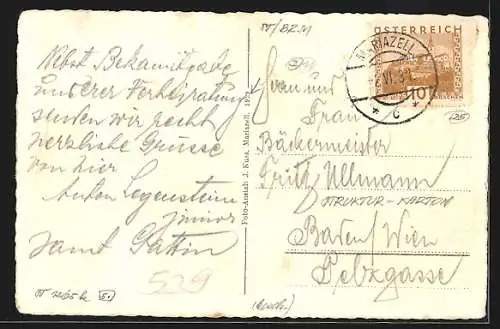 Nebst Bekanntgabe
unserer Verheiratung
senden wir recht
herzliche Grüsse
von hier
Anton Legenstein
junior
samt Gattin
529
Foto-Anstalt J. Kuss, Mariazell.
ÖSTERREICH
MARIAZELL
10
* c *
Herrn und
Frau
Bäckermeister
Fritz Ullmann
STRUKTUR-KARTON
Baden / Wien
Pelzgasse